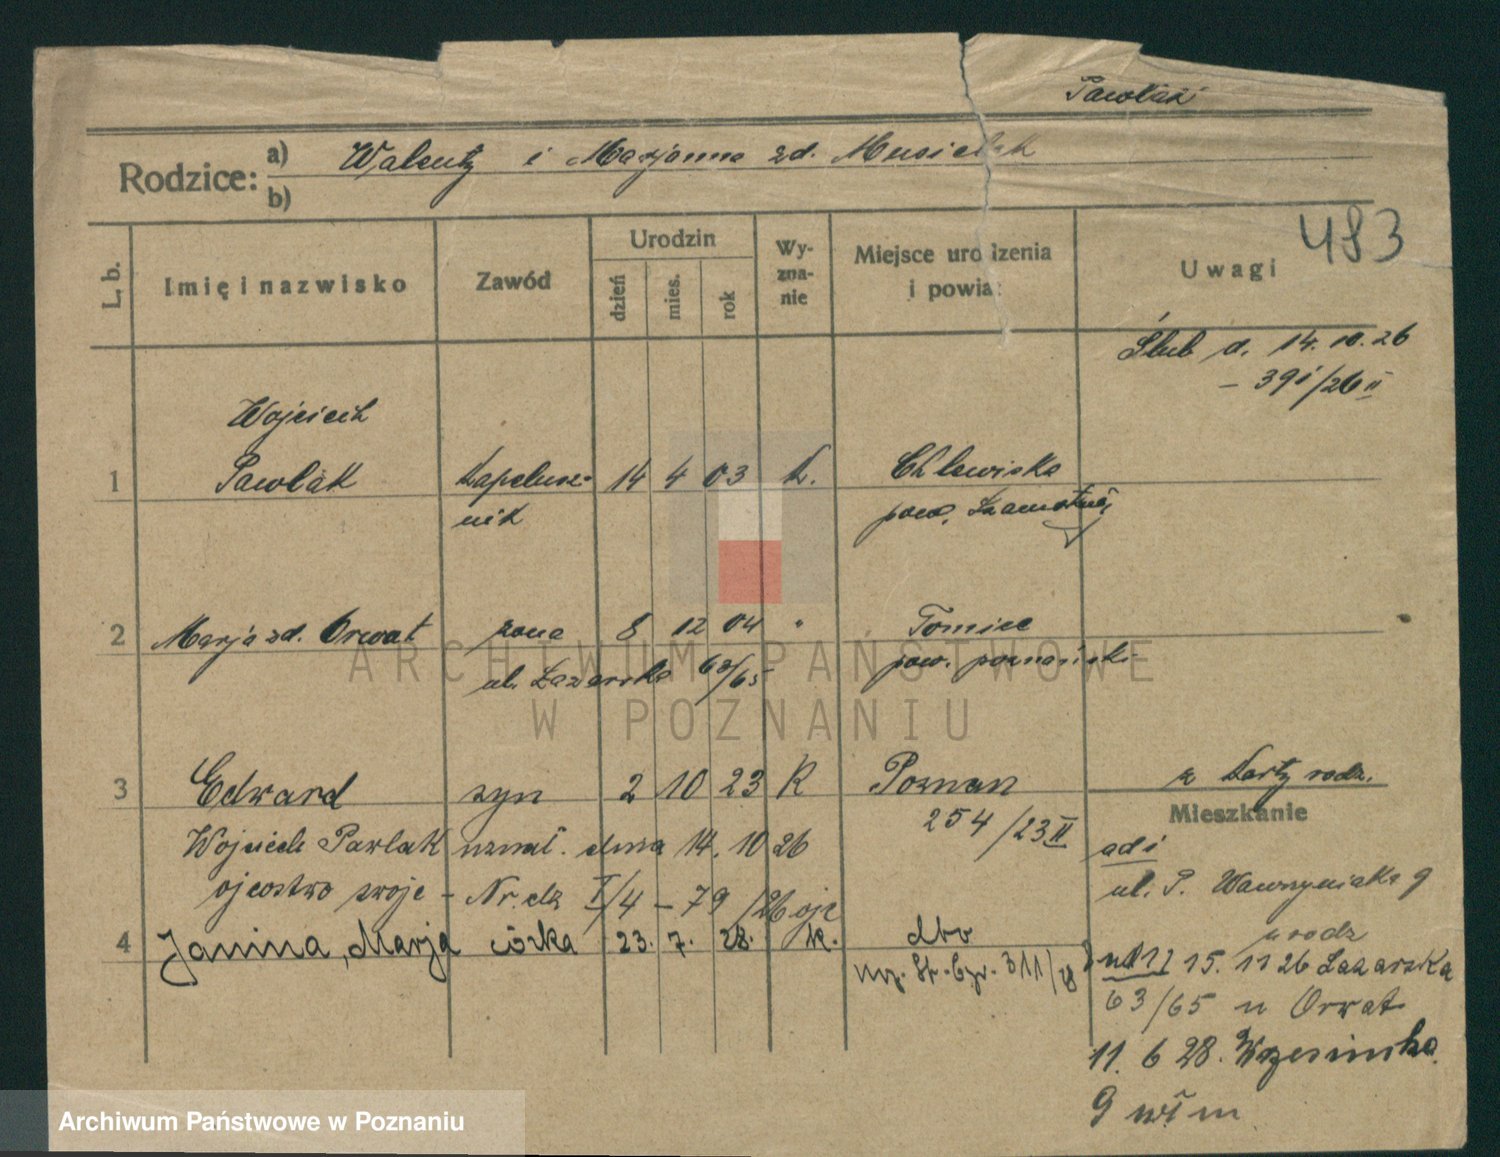 Pawlak
Rodzice: a) Walenty i Marjanna zd. Musielak
b)
483
L. b. Imię i nazwisko Zawód Urodzin dzień mies. rok Wyznanie Miejsce urodzenia i powiat Uwagi
Ślub d. 14. 10. 26
– 391/26 II
Wojciech
1 Pawlak kapelusz- 14 4 03 k. Chlewiska
nik pow. Szamotuły
2 Marja zd. Orwat żona 8 12 04 " Tomice
ul. Łazarska 63/65 pow. poznański
3 Edward syn 2 10 23 K Poznan z karty rodz.
254/23 II
Mieszkanie
Wojciech Pawlak uznał. dnia 14. 10 26
adi
ojcostwo swoje – Nr. dz I/4 – 79/26 ojc
ul. P. Wawrzyniaka 9
4 Janina, Marja córka 23. 7. 28. k. dto
u rodz
St. Cyw. 311/28
15. 11 26 Łazarska
63/65 u Orwat
11. 6 28. Wrzesińska
9 wł m
ARCHIWUM PAŃSTWOWE
W POZNANIU
Archiwum Państwowe w Poznaniu